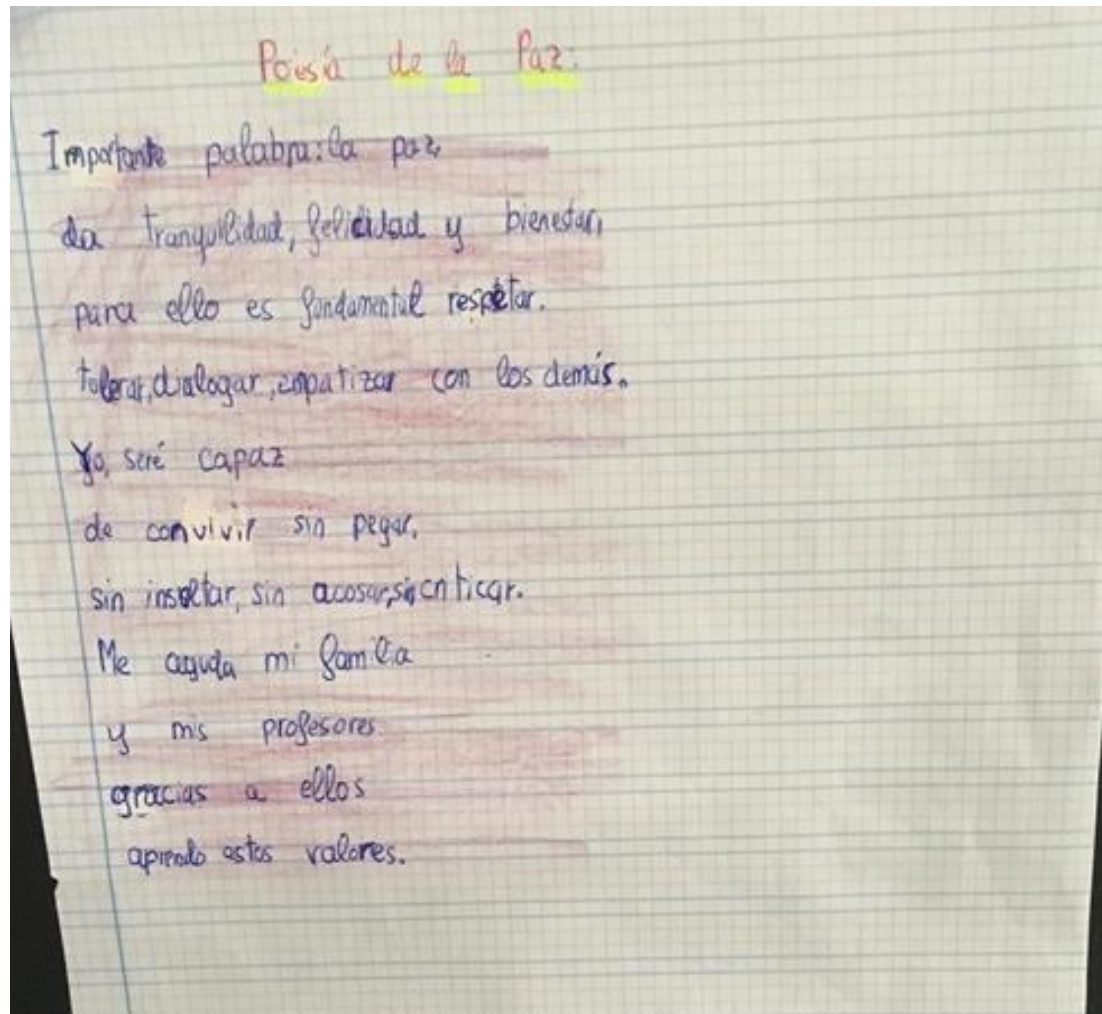 Poesía de la Paz:
Importante palabra: la paz,
da tranquilidad, felicidad y bienestar,
para ello es fundamental respetar.
tolerar, dialogar, empatizar con los demás.
Yo, seré capaz
de convivir sin pegar,
sin insultar, sin acosar, sin criticar.
Me ayuda mi familia
y mis profesores.
gracias a ellos
aprendo estos valores.